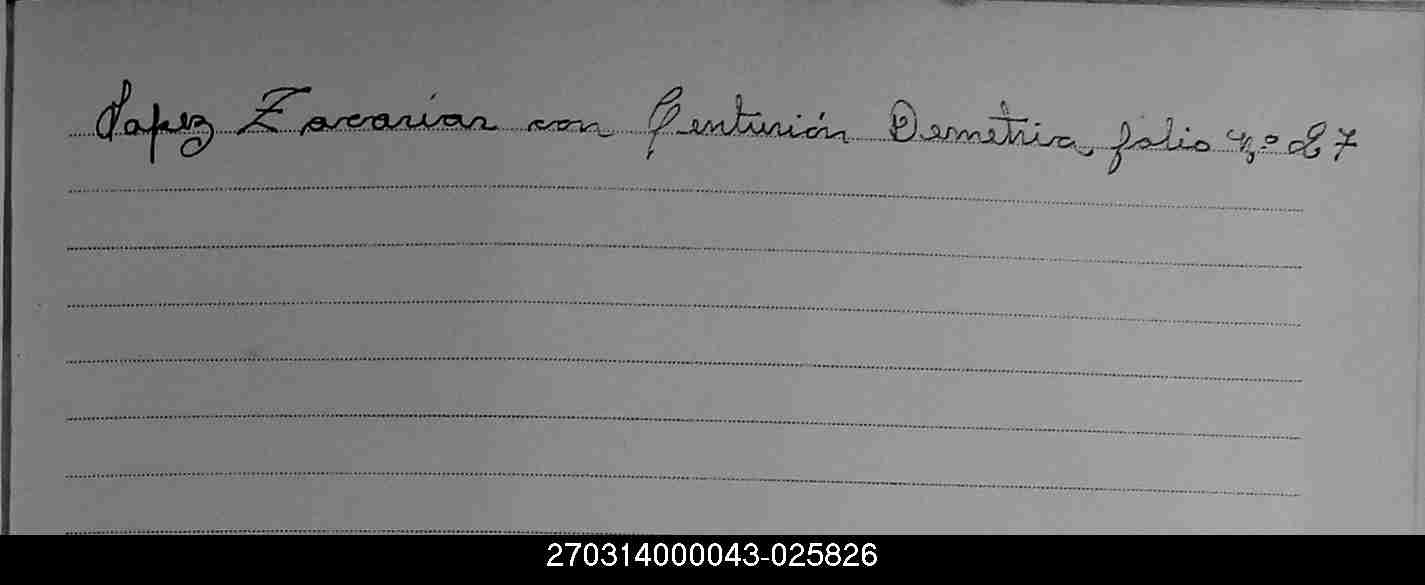 Lopez Zacarías con Centurión Demetria, folio nº 27
270314000043-025826